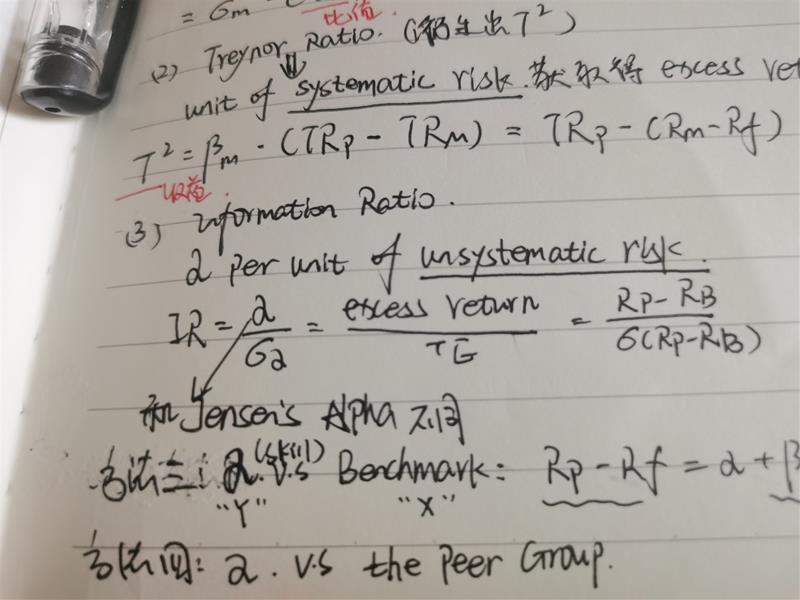 = σm
比值
(2) Treynor Ratio. (衍生出 T²)
unit of systematic risk 获取得 excess ret
T² = βm · (TRp - TRm) = TRp - (Rm - Rf)
收益
(3) Information Ratio.
α per unit of unsystematic risk.
IR = α/σα = excess return/TE = Rp - RB/σ(Rp - RB)
和 Jensen's Alpha 不同
方法三: α (skill) v.s Benchmark: Rp - Rf = α + β
"Y" "X"
方法四: α. v.s the Peer Group.